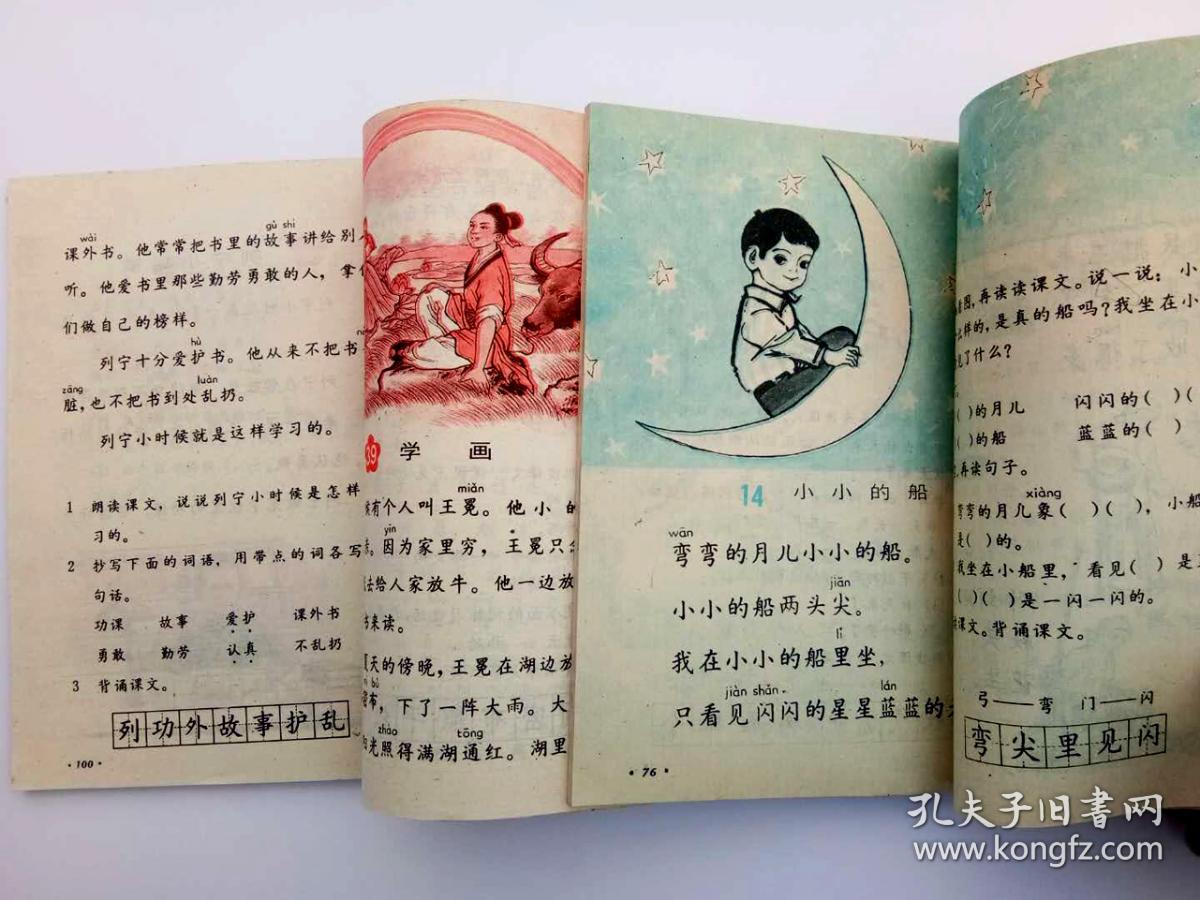 wài gù shi
课外书。他常常把书里的故事讲给别
听。他爱书里那些勤劳勇敢的人，拿
们做自己的榜样。
hù
列宁十分爱护书。他从来不把书
zāng luàn
脏，也不把书到处乱扔。
列宁小时候就是这样学习的。
1 朗读课文，说说列宁小时候是怎样
习的。
2 抄写下面的词语，用带点的词各写
句话。
功课 故事 爱护 课外书
勇敢 勤劳 认真 不乱扔
3 背诵课文。
列功外故事护乱
·100·
39 学画
miǎn
有个人叫王冕。他小的
yīn
因为家里穷，王冕只
去给人家放牛。他一边放
书来读。
天的傍晚，王冕在湖边放
bù
布，下了一阵大雨。大
zhào tōng
阳光照得满湖通红。湖里
14 小小的船
wān
弯弯的月儿小小的船。
jiān
小小的船两头尖。
lǐ
我在小小的船里坐，
jiàn shǎn lán
只看见闪闪的星星蓝蓝的
·76·
图，再读读课文。说一说：小
么样的，是真的船吗？我坐在小
见了什么？
( )的月儿 闪闪的( )(
( )的船 蓝蓝的( )
，再读句子。
xiàng
弯弯的月儿象( )( )，小船
是( )的。
我坐在小船里，看见( )是
( )( )是一闪一闪的。
课文。背诵课文。
弓——弯 门——闪
弯尖里见闪
孔夫子旧书网
www.kongfz.com